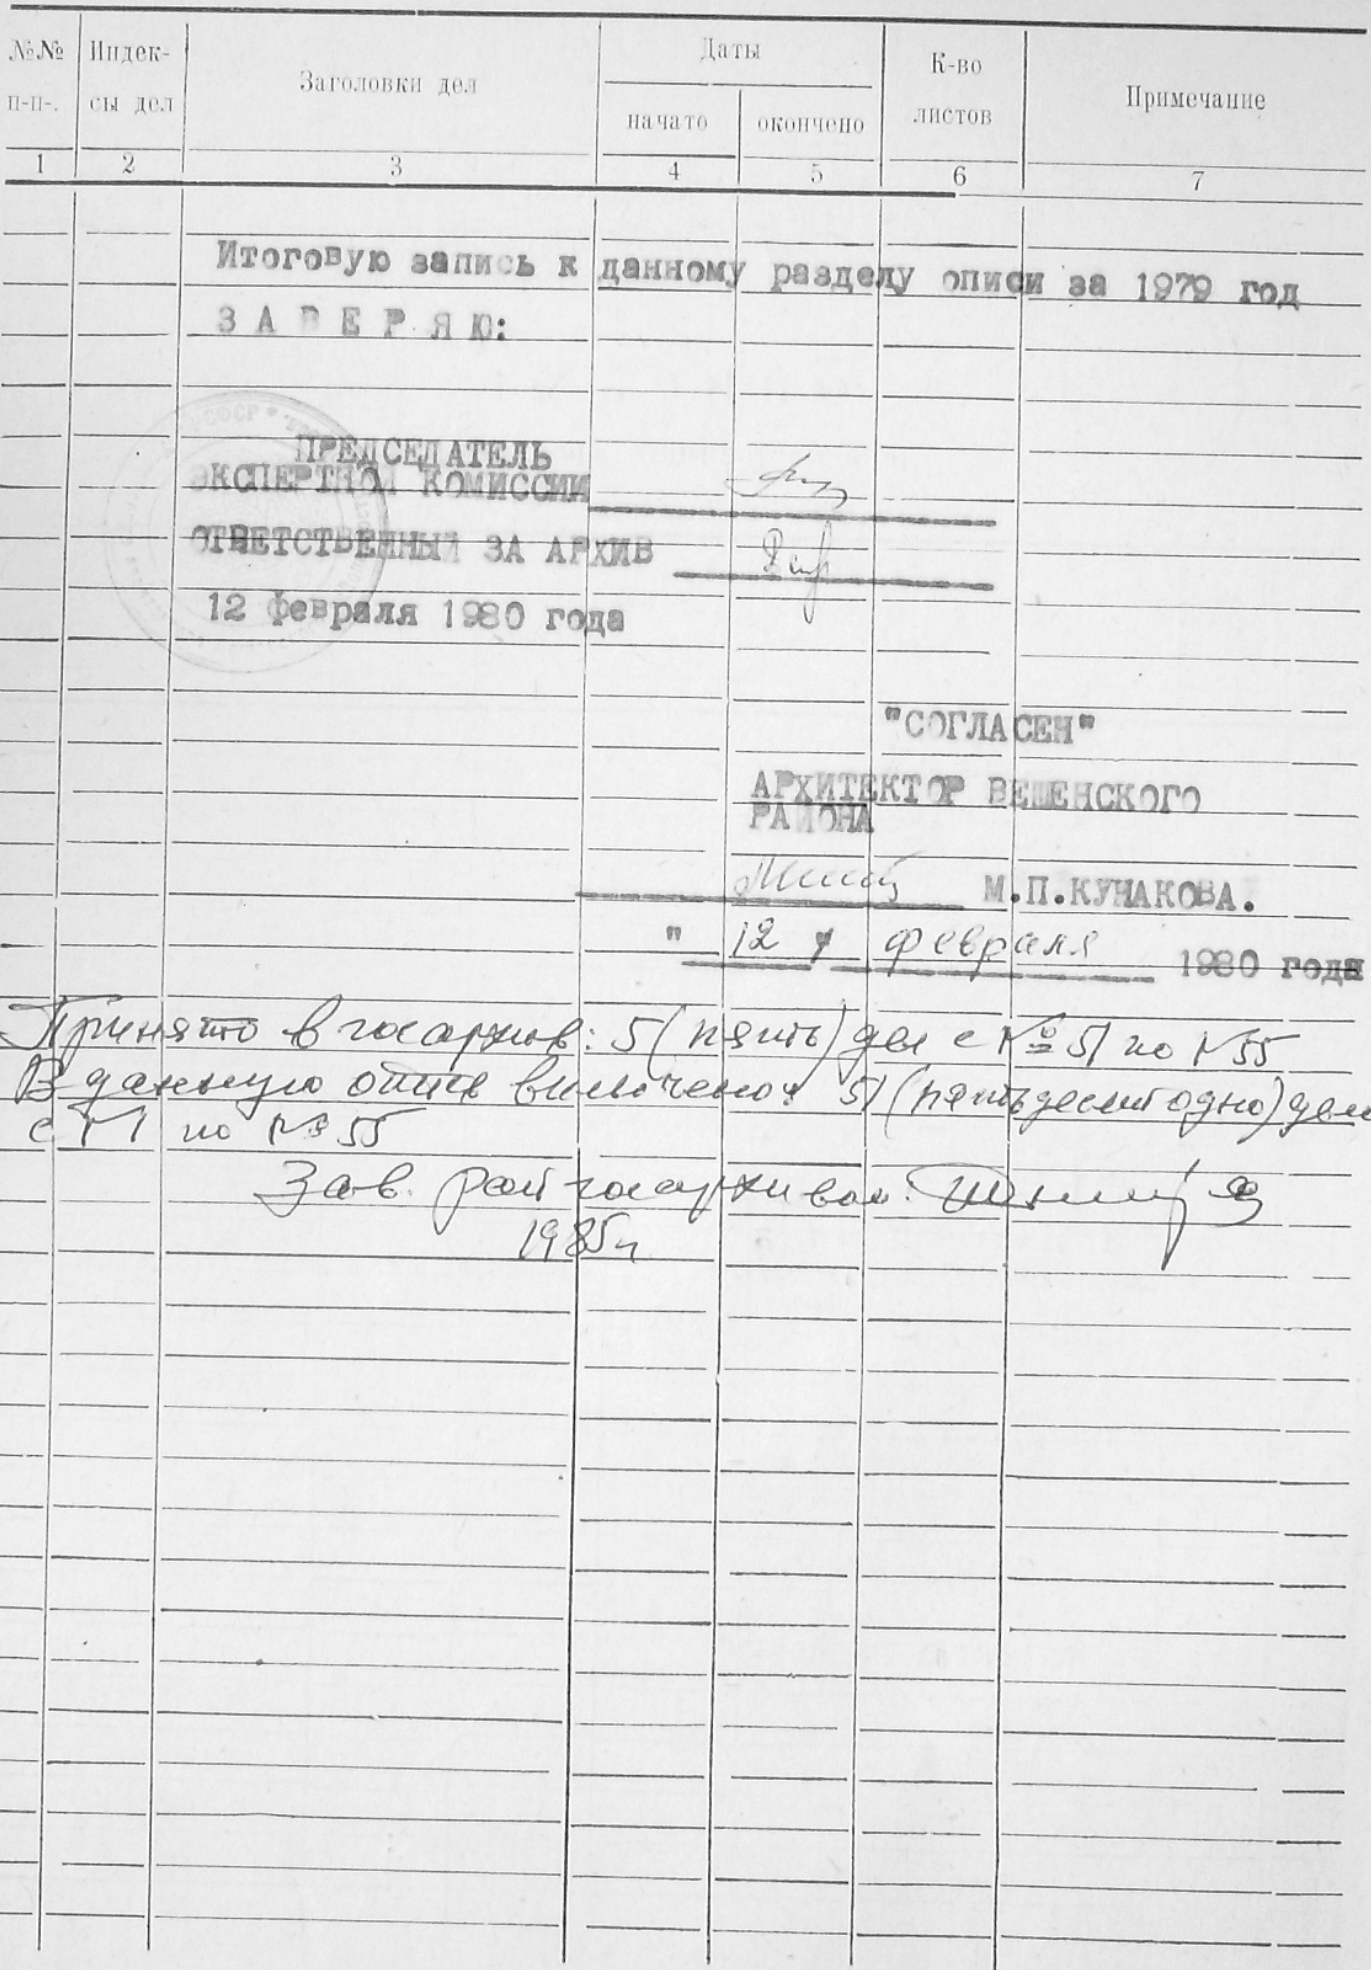 №№ п-п-.
Индек-
сы дел
Заголовки дел
Даты
начато
окончено
К-во
листов
Примечание
1 2 3 4 5 6 7
Итоговую запись к данному разделу описи за 1979 год
ЗАВЕРЯЮ:
РСФСР
ПРЕДСЕДАТЕЛЬ
ЭКСПЕРТНОЙ КОМИССИИ
ОТВЕТСТВЕННЫЙ ЗА АРХИВ
12 февраля 1980 года
"СОГЛАСЕН"
АРХИТЕКТОР ВЕШЕНСКОГО
РАЙОНА
М.П.КУНАКОВА.
" 12 " февраля 1980 года
Принято в госархив: 5 (пять) дел с № 51 по № 55
В данную опись включено: 51 (пятьдесят одно) дело
с №1 по № 55
Зав. райгосархивом
1985г